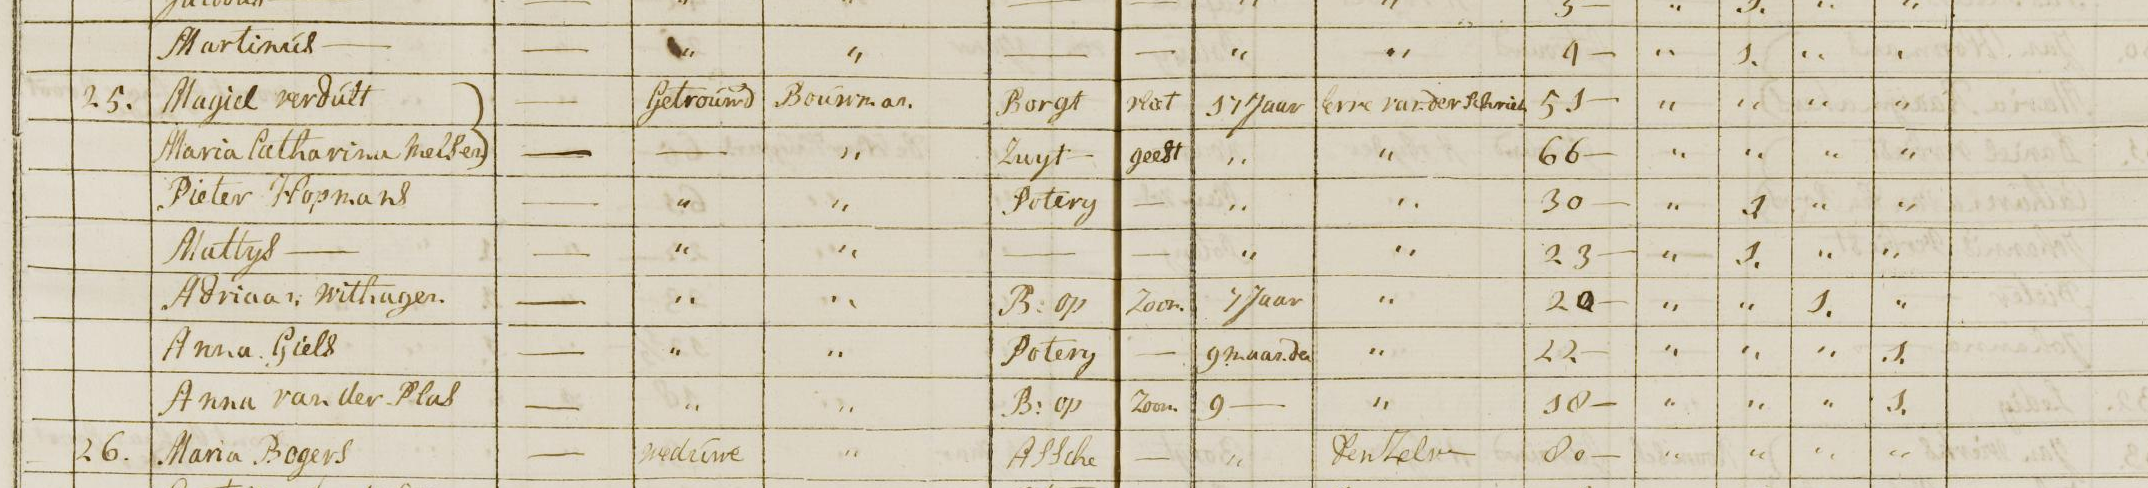 Martinus — — " " — — " " 4 — " 1. " "
25. Magiel verdult — Getrouwd Bouwman. Borgt vliet 17 Jaar Erve van der Schriek 51 — " " " "
Maria Catharina Melsen — — " Zuyt — geest " " 66 — " " " "
Pieter Hopmans — " " Potery — " " 30 — " 1 " "
Mattys — — " " — — " " 23 — " 1. " "
Adriaan withagen. — " " B: op Zoom. 7 Jaar " 20 — " " 1. "
Anna Giels — " " Potery — 9 maanden " 22 — " " " 1.
Anna van der Plas — " " B: op Zoom 9 — " 18 — " " " 1.
26. Maria Bogers — weduwe " Assche — " den Zelve 80 — " " " "